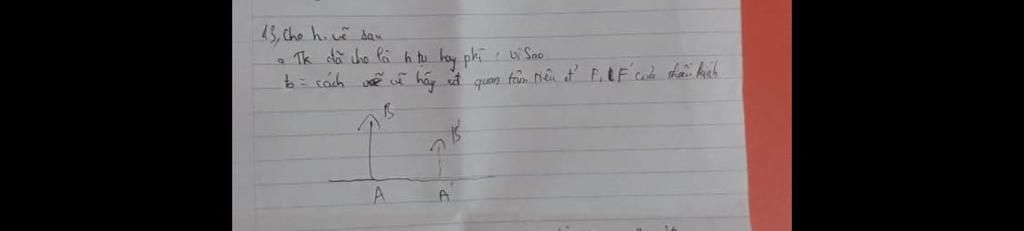 13, Cho h. vẽ sau
a TK đã cho là h tụ hay phì : vì sao
b = cách vẽ hãy xđ quang tâm tiêu đ' F, F' của thấu kính
B
B'
A
A'